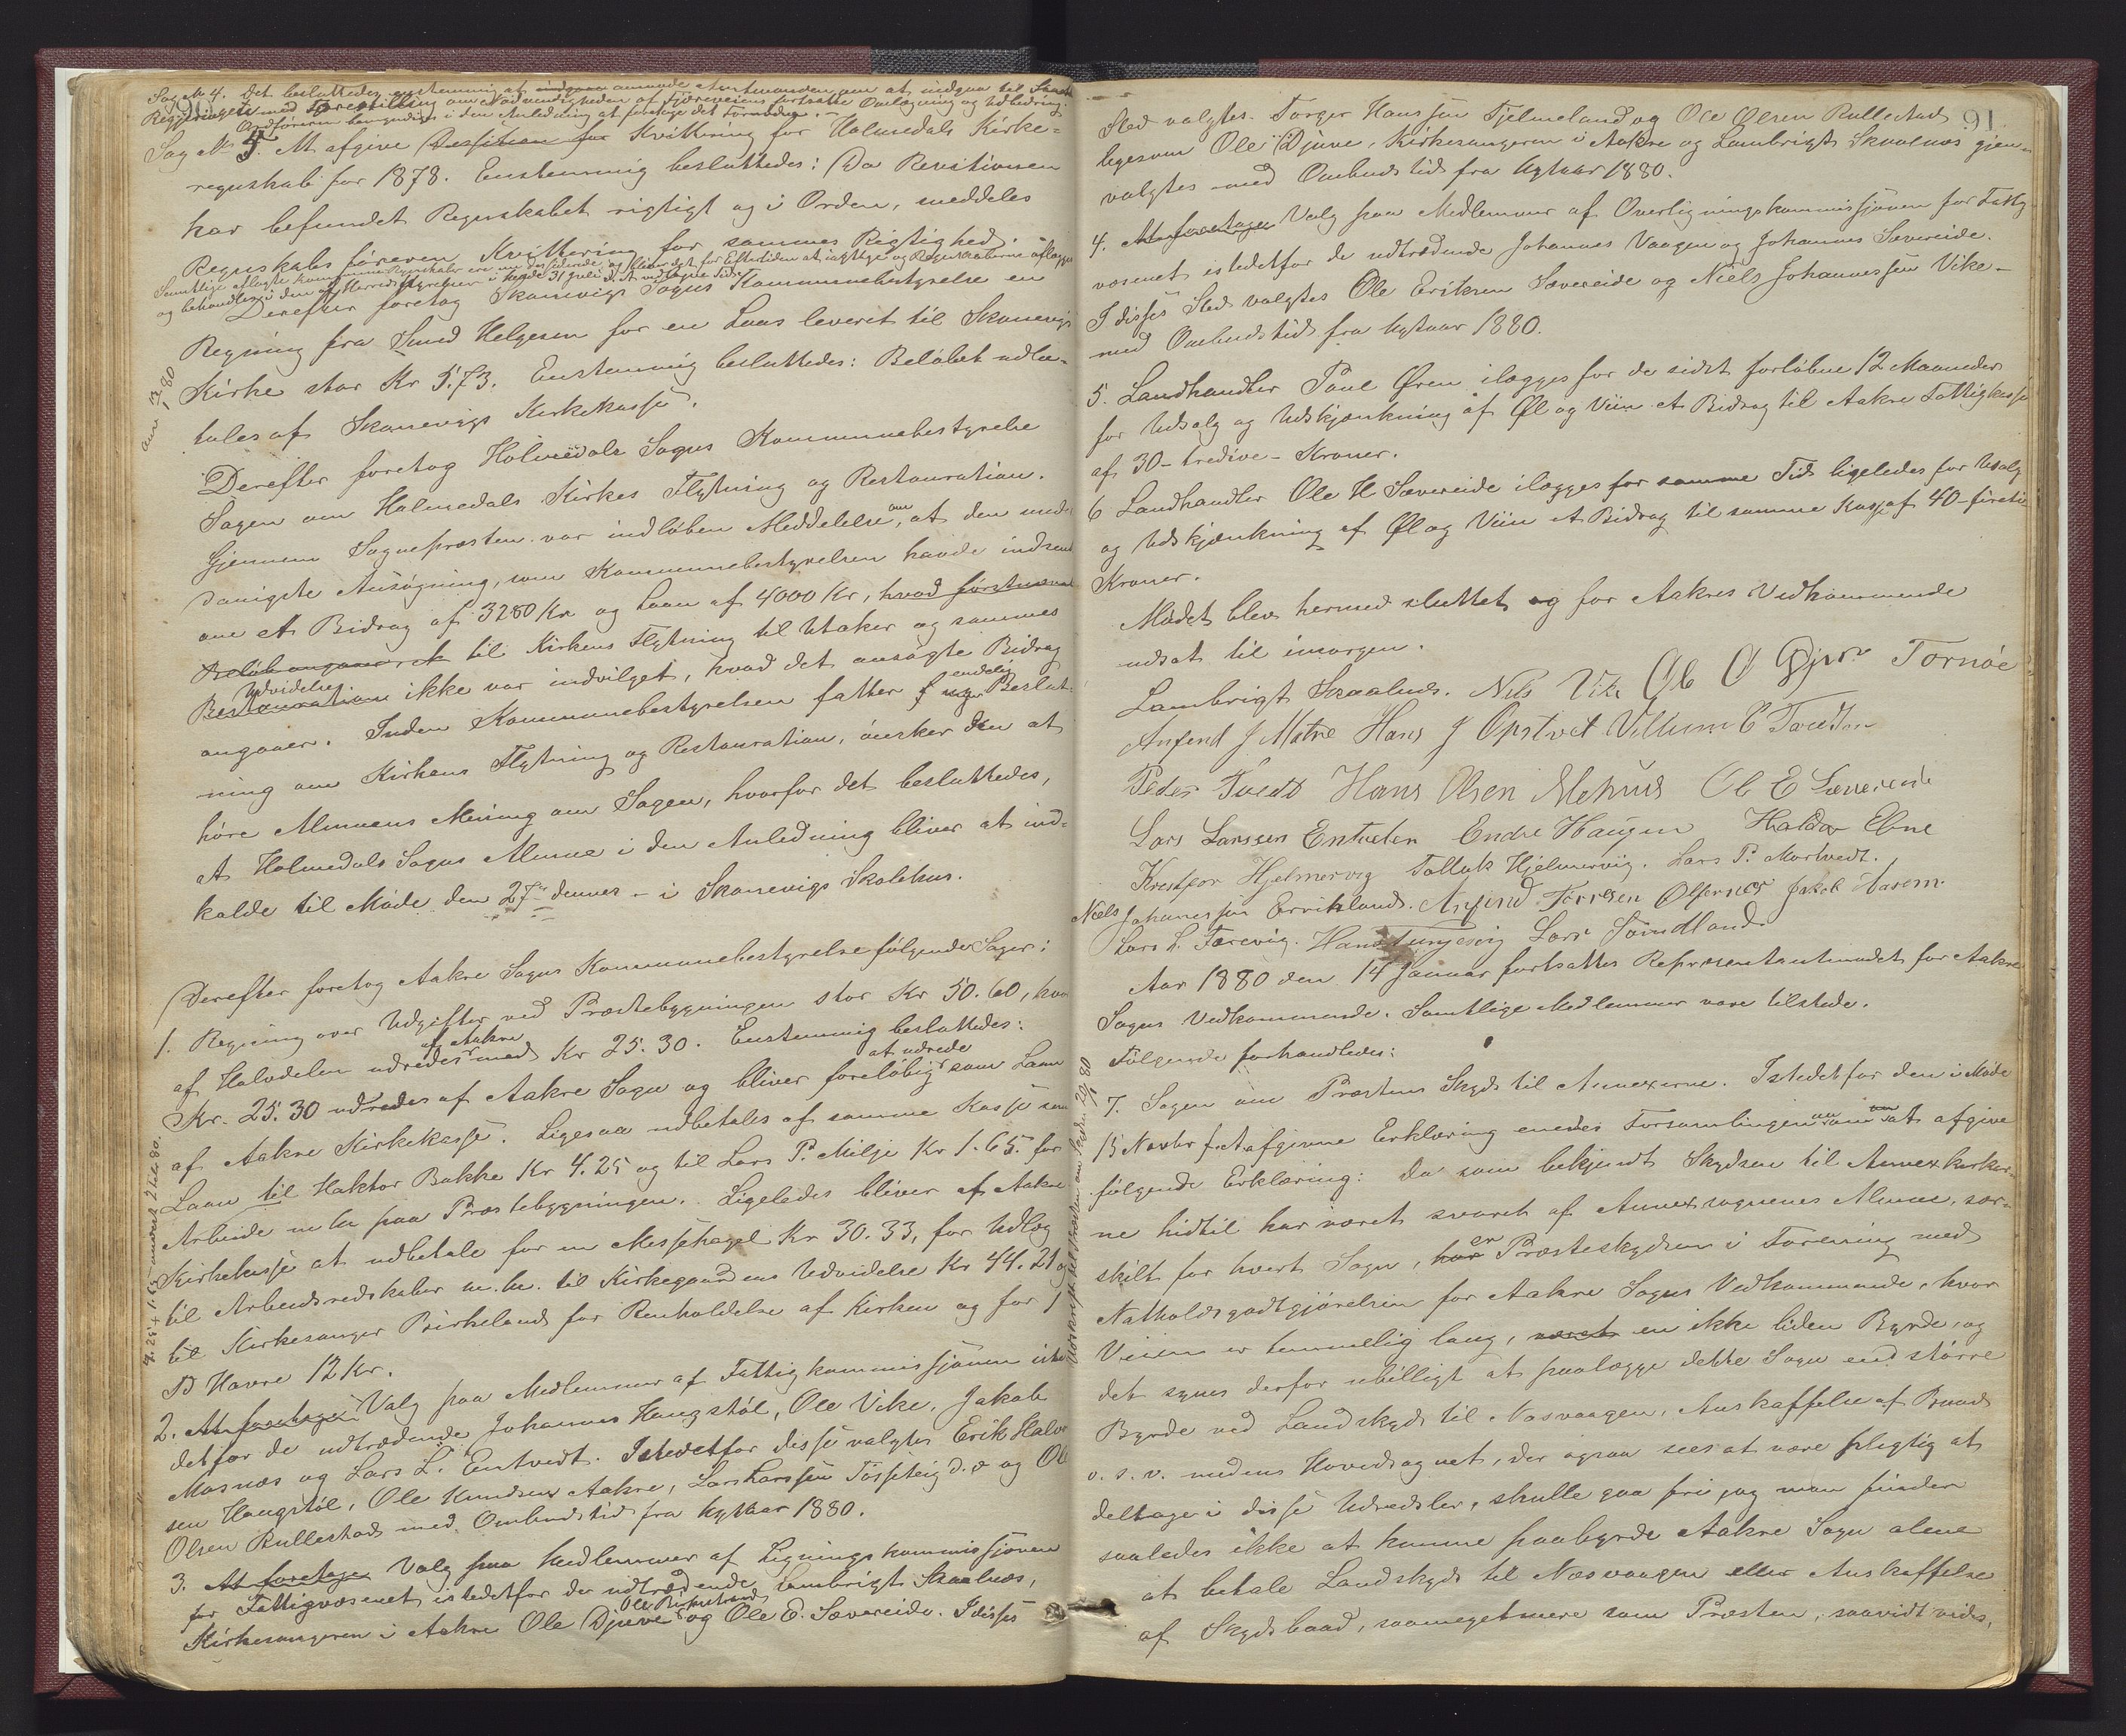 90
Sag No 4. Det besluttedes enstemmig at indgaa anmode Amtmanden om at indgaa til
Regjeringen med Forestilling om Nödvendigheden af Fjöreveiens fortsatte Omlægning og Udbedring.
Ordföreren i den Anledning at foretage det Fornødne.
Sag No 5. At afgive Desition for Kvittering for Holmedals Kirke-
regnskab for 1878. Enstemmig besluttedes: Da Revisionen
har befundet Regnskabet rigtigt og i Orden, meddeles
Regnskabsføreren Kvittering for sammes Rigtighed.
Samtlige aflagte Kommune Regnskaber ere nu desiderede og bliver det for Eftertiden at iagttage at Regnskaberne aflægges
og behandles i den af Herredsstyrelsen i Møde 31 Juli d. A. vedtagne Tid.
Derefter foretog Skonevigs Sogns Kommunebestyrelse en
Regning fra Smed Helgesen for en Laas leveret til Skonevigs
Kirke stor Kr 5.73. Enstemmig besluttedes: Beløbet udbe-
tales af Skonevigs Kirkekasse.
Derefter foretog Holmedals Sogns Kommunebestyrelse
Sagen om Holmedals Kirkes Flytning og Restauration.
Gjennem Sognepræsten var indløben Meddelelse om, at den under-
danigste Ansøgning, som Kommunebestyrelsen havde indsendt
om et Bidrag af 3280 Kr og Laan af 4000 Kr, hvad förstnævnte
Beløb angaar, ek til Kirkens Flytning til Utaker og sammes
Udvidelse
Restauration ikke var indvilget, hvad det ansøgte Bidrag
endelig
angaaer. Inden Kommunebestyrelsen fatter Beslut-
ning om Kirkens Flytning og Restauration, ønsker den at
høre Almuens Mening om Sagen, hvorfor det besluttedes,
at Holmedals Sogns Almue i den Anledning bliver at ind-
kalde til Møde den 27de dennes - i Skonevigs Skolehus.
Derefter foretog Aakre Sogns Kommunebestyrelse følgende Sager:
1. Regning over Udgifter ved Præstebygningen stor Kr 50.60, hvor-
af Halvdelen udredes af Aakre med Kr 25.30. Enstemmig besluttedes:
Kr. 25.30 udredes af Aakre Sogn og bliver foreløbig at udrede som Laan
af Aakre Kirkekasse. Ligesaa udbetales af samme Kasse som
Laan til Haktor Bakke Kr 4.25 og til Lars P. Milje Kr 1.65 for
Arbeide m.m. paa Præstebygningen. Ligeledes bliver af Aakre
Kirkekasse at udbetale for en Messehagel Kr 30.33, for Udlæg
til Arbeidsredskaber m.m. til Kirkegaardens Udvidelse Kr 44.21 og
til Kirkesanger Birkeland for Renholdelse af Kirken og for 1
Td Havre 12 Kr.
2. At foretage Valg paa Medlemmer af Fattigkommissjonen iste-
detfor de udtrædende Johannes Haugstöl, Ole Vike, Jakob
Mosnæs og Lars L. Entvedt. Istedetfor disse valgtes Erik Halvor-
sen Haugstöl, Ole Knudsen Aakre, Lars Larssen Tösseteig d.æ og Ole
Olsen Rullestad med Ombudstid fra Nytaar 1880.
3. At foretage Valg paa Medlemmer af Ligningskommissjonen
for Fattigvæsenet istedetfor de udtrædende Lambrigt Skaalnæs,
Ole Birkeland
Kirkesangeren i Aakre Ole Djuve og Ole E. Sævereide. I disses
91.
Sted valgtes Torger Hanssen Fjelmeland og Ole Olsen Rullestad
ligesom Ole Djuve, Kirkesangeren i Aakre og Lambrigt Skaalnæs gjen-
valgtes med Ombudstid fra Nytaar 1880.
4. At foretage Valg paa Medlemmer af Overligningskommissjonen for Fattig-
væsenet istedetfor de udtrædende Johannes Vaagen og Johannes Sævereide.
I disses Sted valgtes Ole Eriksen Sævereide og Niels Johannessen Vike-
med Ombudstid fra Nytaar 1880.
5. Landhandler Paul Øren ilægges for de sidst forløbne 12 Maaneder
for Udsalg og Udskjænkning af Øl og Viin et Bidrag til Aakre Fattigkasse
af 30 - tredive - Kroner.
6 Landhandler Ole H Sævereide ilægges for samme Tid ligeledes for Udsalg
og Udskjænkning af Øl og Viin et Bidrag til samme Kasse af 40 - fireti
Kroner.
Mødet blev hermed sluttet og for Aakres Vedkommende
udsat til imorgen.
Lambrigt Skaalnes. Nils Vik Ole O Djuv Tornöe
Anfend J Matre Hans J Opstvet Villum E Tvedtn
Peder Tvedt Hans Olsen Mehus Ole E Sævereide
Lars Larssen Entveten Endre Haugen Haldor Ebne
Krestfor Hjelmervig Tallak Hjelmervig. Lars P. Mortvedt.
Niels Johanessen Ervikland. Anfind Torresen Olfernes Jakob Aarem.
Lars L. Tørevig. Hans Tungesvig Lars Sandland
Aar 1880 den 14 Januar fortsattes Representantmødet for Aakre
Sogns Vedkommende. Samtlige Medlemmer vare tilstede.
Følgende forhandledes:
7. Sagen om Præstens Skyds til Annexerne. Istedetfor den i Møde
15 Novbr f. A afgivne Erklæring enedes Forsamlingen om at afgive
følgende Erklæring: Da som bekjendt Skydsen til Annexkirker-
ne hidtil har været svaret af Annexsognenes Almue, sær-
skilt for hvert Sogn, har er Præsteskydsen i Forening med
Natholdsgodtgjørelsen for Aakre Sogns Vedkommende, hvor
Veien er temmelig lang, været en ikke liden Byrde, og
det synes derfor ubilligt at paalægge dette Sogn end større
Byrde ved Landskyds til Næsvaagen, Anskaffelse af Baad
o. s. v. medens Hovedsognet, der ogsaa sees at være pligtig at
deltage i disse Udredsler, skulle gaa fri, og man finder
saaledes ikke at kunne paabyrde Aakre Sogn alene
at betale Landskyds til Næsvaagen eller Anskaffelse
af Skydsbaad, saameget mere som Præsten, saavidt vides,